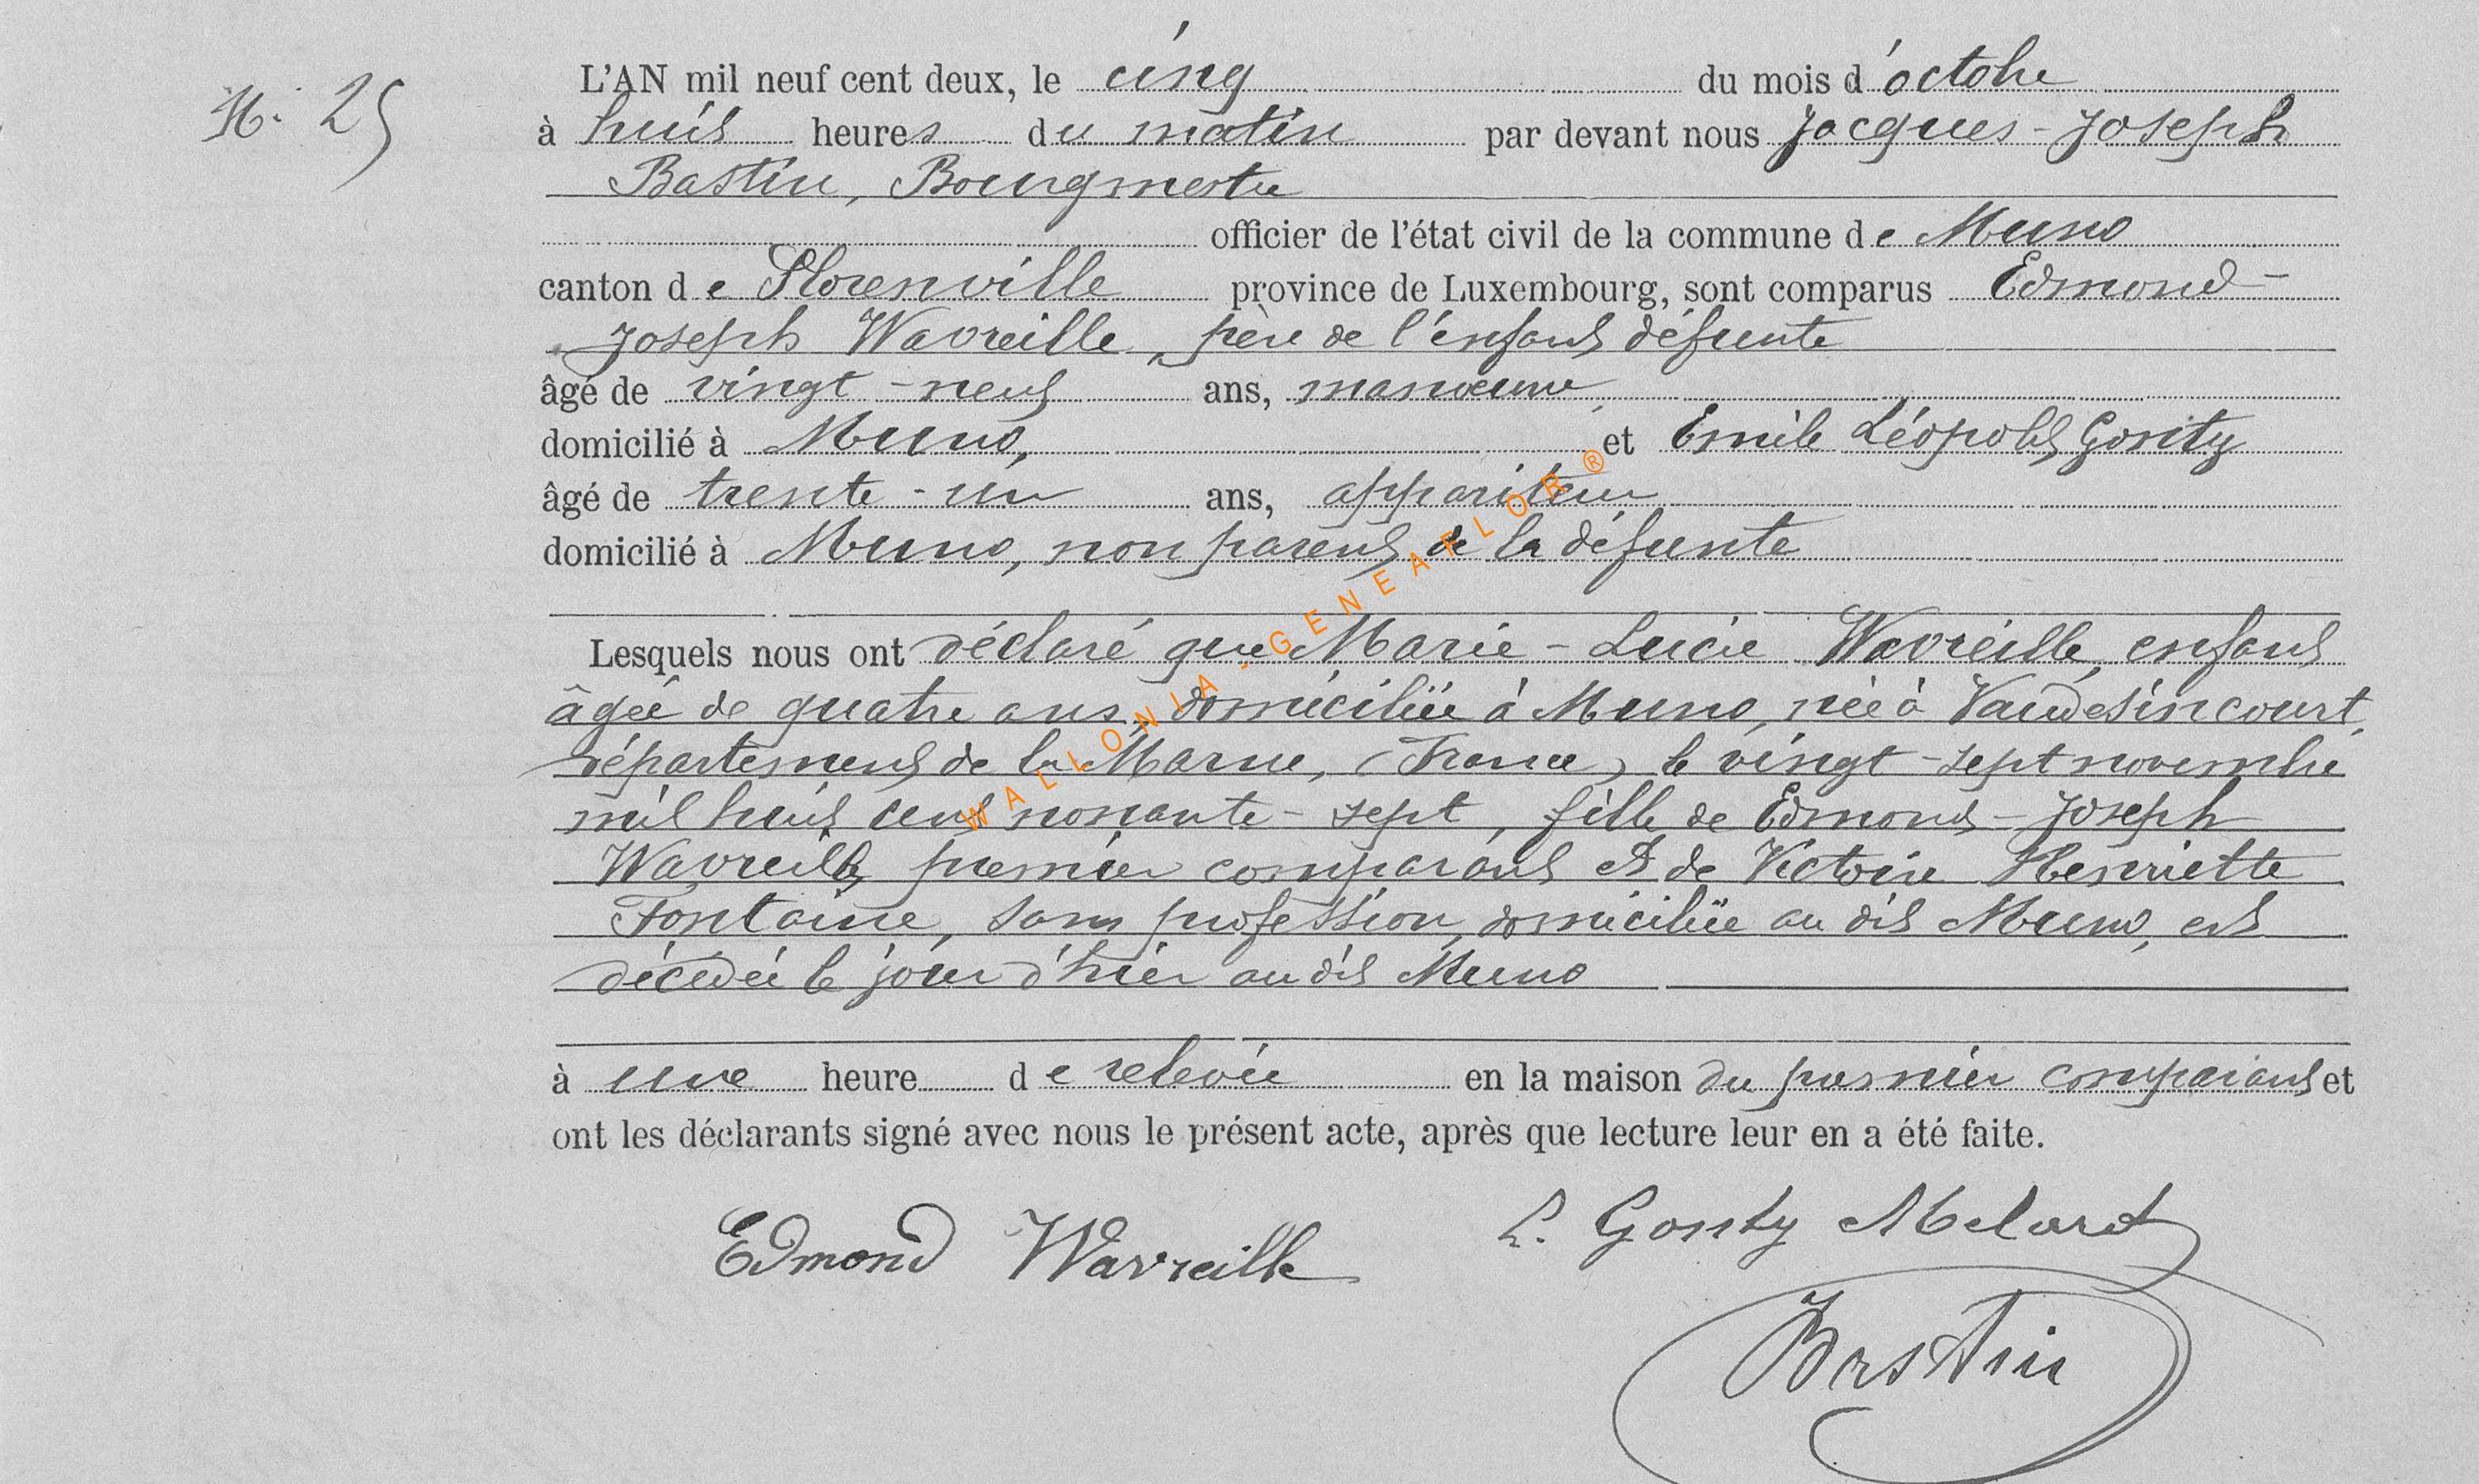 N: 25
L'AN mil neuf cent deux, le cinq du mois d'octobre
à huit heures du matin par devant nous Jacques-Joseph
Bastin, Bourgmestre
officier de l'état civil de la commune de Muno
canton de Florenville province de Luxembourg, sont comparus Edmond-
Joseph Wavreille, père de l'enfant défunte
âgé de vingt-neuf ans, manoeuvre,
domicilié à Muno, et Emile Léopold Gonty
âgé de trente-un ans, appariteur
domicilié à Muno, non parent de la défunte
Lesquels nous ont déclaré que Marie-Lucie Wavreille, enfant
âgée de quatre ans, domiciliée à Muno, née à Vaudesincourt,
département de la Marne, (France) le vingt-sept novembre
mil huit cent nonante-sept, fille de Edmond-Joseph
Wavreille, premier comparant et de Victoire Henriette
Fontaine, sans profession, domiciliée au dit Muno, est
décédée le jour d'hier au dit Muno
à une heure de relevée en la maison du premier comparant et
ont les déclarants signé avec nous le présent acte, après que lecture leur en a été faite.
Edmond Wavreille L. Gonty Melard
Bastin
WALLONIA-GENEAFLOR ®